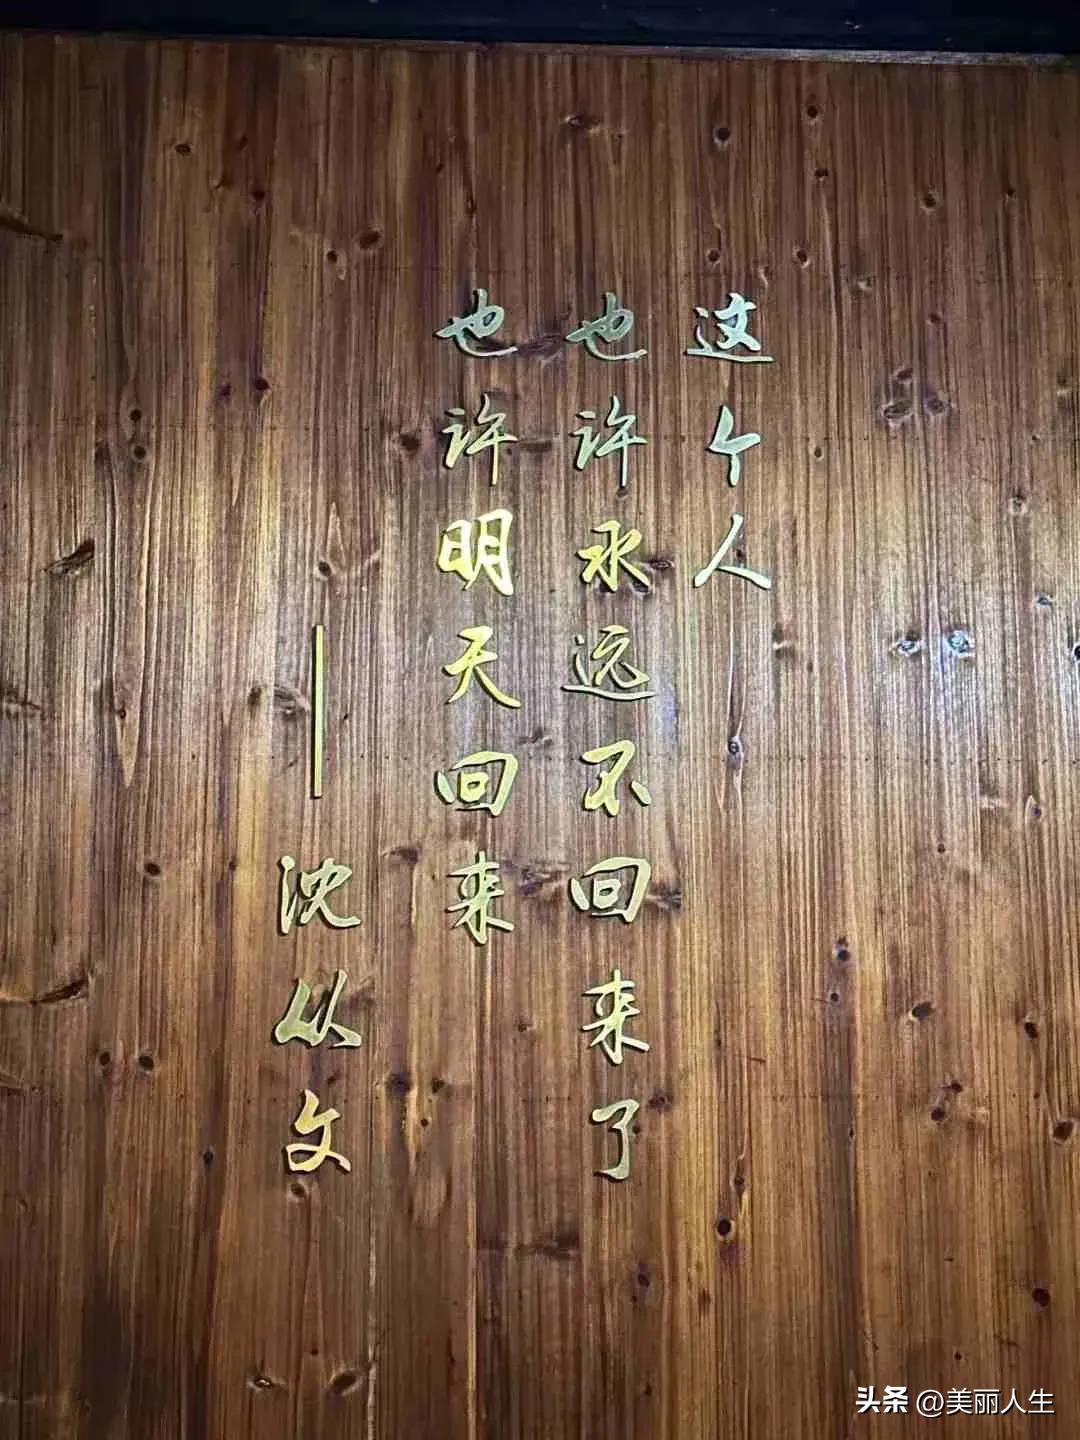 这个人
也许永远不回来了
也许明天回来
——沈从文
头条 @美丽人生